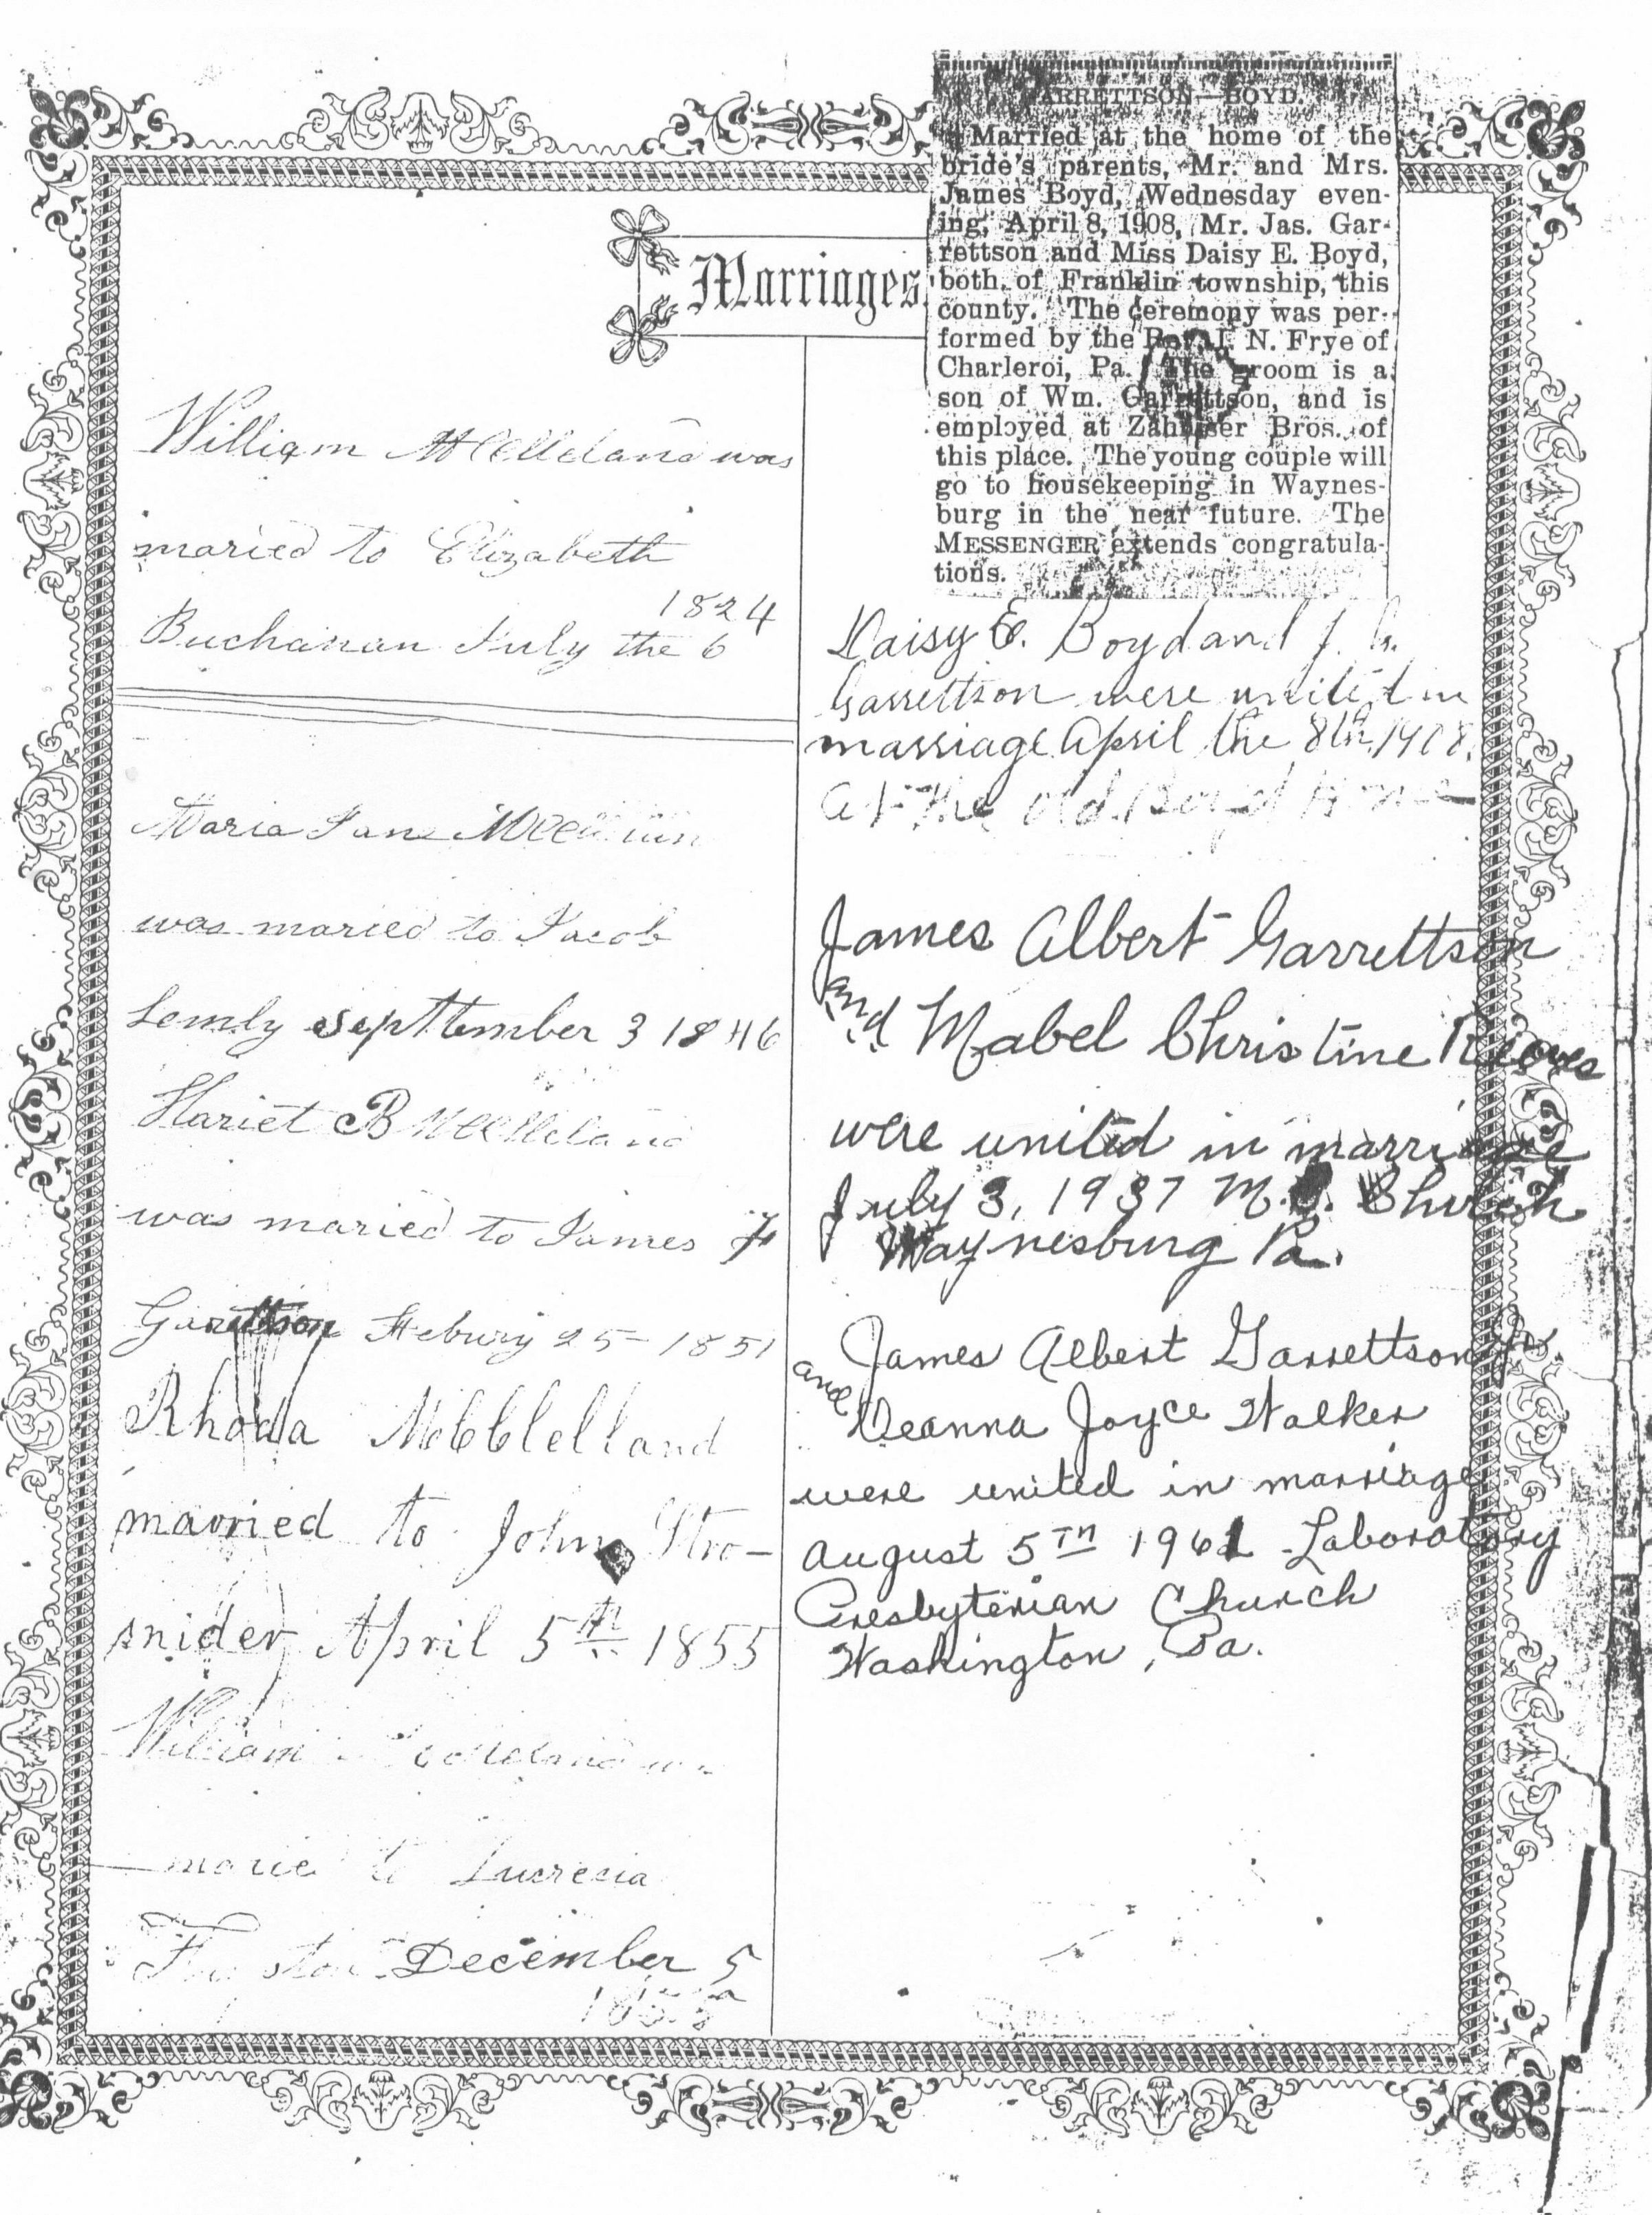 Marriages.
William McClleland was
maried to Elizabeth
1824
Buchanan July the 6
Maria Jane
was maried to Jacob
Lemly september 3 1846
Hariet B McClleland
was maried to James
Garettson Febury 25 1851
Rhoda McCllelland
married to John Stro-
snider April 5th 1855
William
maried to Lucrecia
December 5
GARRETTSON—BOYD.
Married at the home of the
bride's parents, Mr. and Mrs.
James Boyd, Wednesday even-
ing, April 8, 1908, Mr. Jas. Gar-
rettson and Miss Daisy E. Boyd,
both of Franklin township, this
county. The ceremony was per-
formed by the Rev. J. N. Frye of
Charleroi, Pa. The groom is a
son of Wm. Garrettson, and is
employed at Zahniser Bros. of
this place. The young couple will
go to housekeeping in Waynes-
burg in the near future. The
MESSENGER extends congratula-
tions.
Daisy E. Boyd and J. A.
Garrettson were united in
marriage April the 8th, 1908.
At the old Boyd Home
James Albert Garrettson
and Mabel Christine
were united in marriage
July 3, 1937 M.E. Church
Waynesburg Pa.
James Albert Garrettson Jr.
and Deanna Joyce Walker
were united in marriage
August 5TH 1961 Laboratory
Presbyterian Church
Washington, Pa.